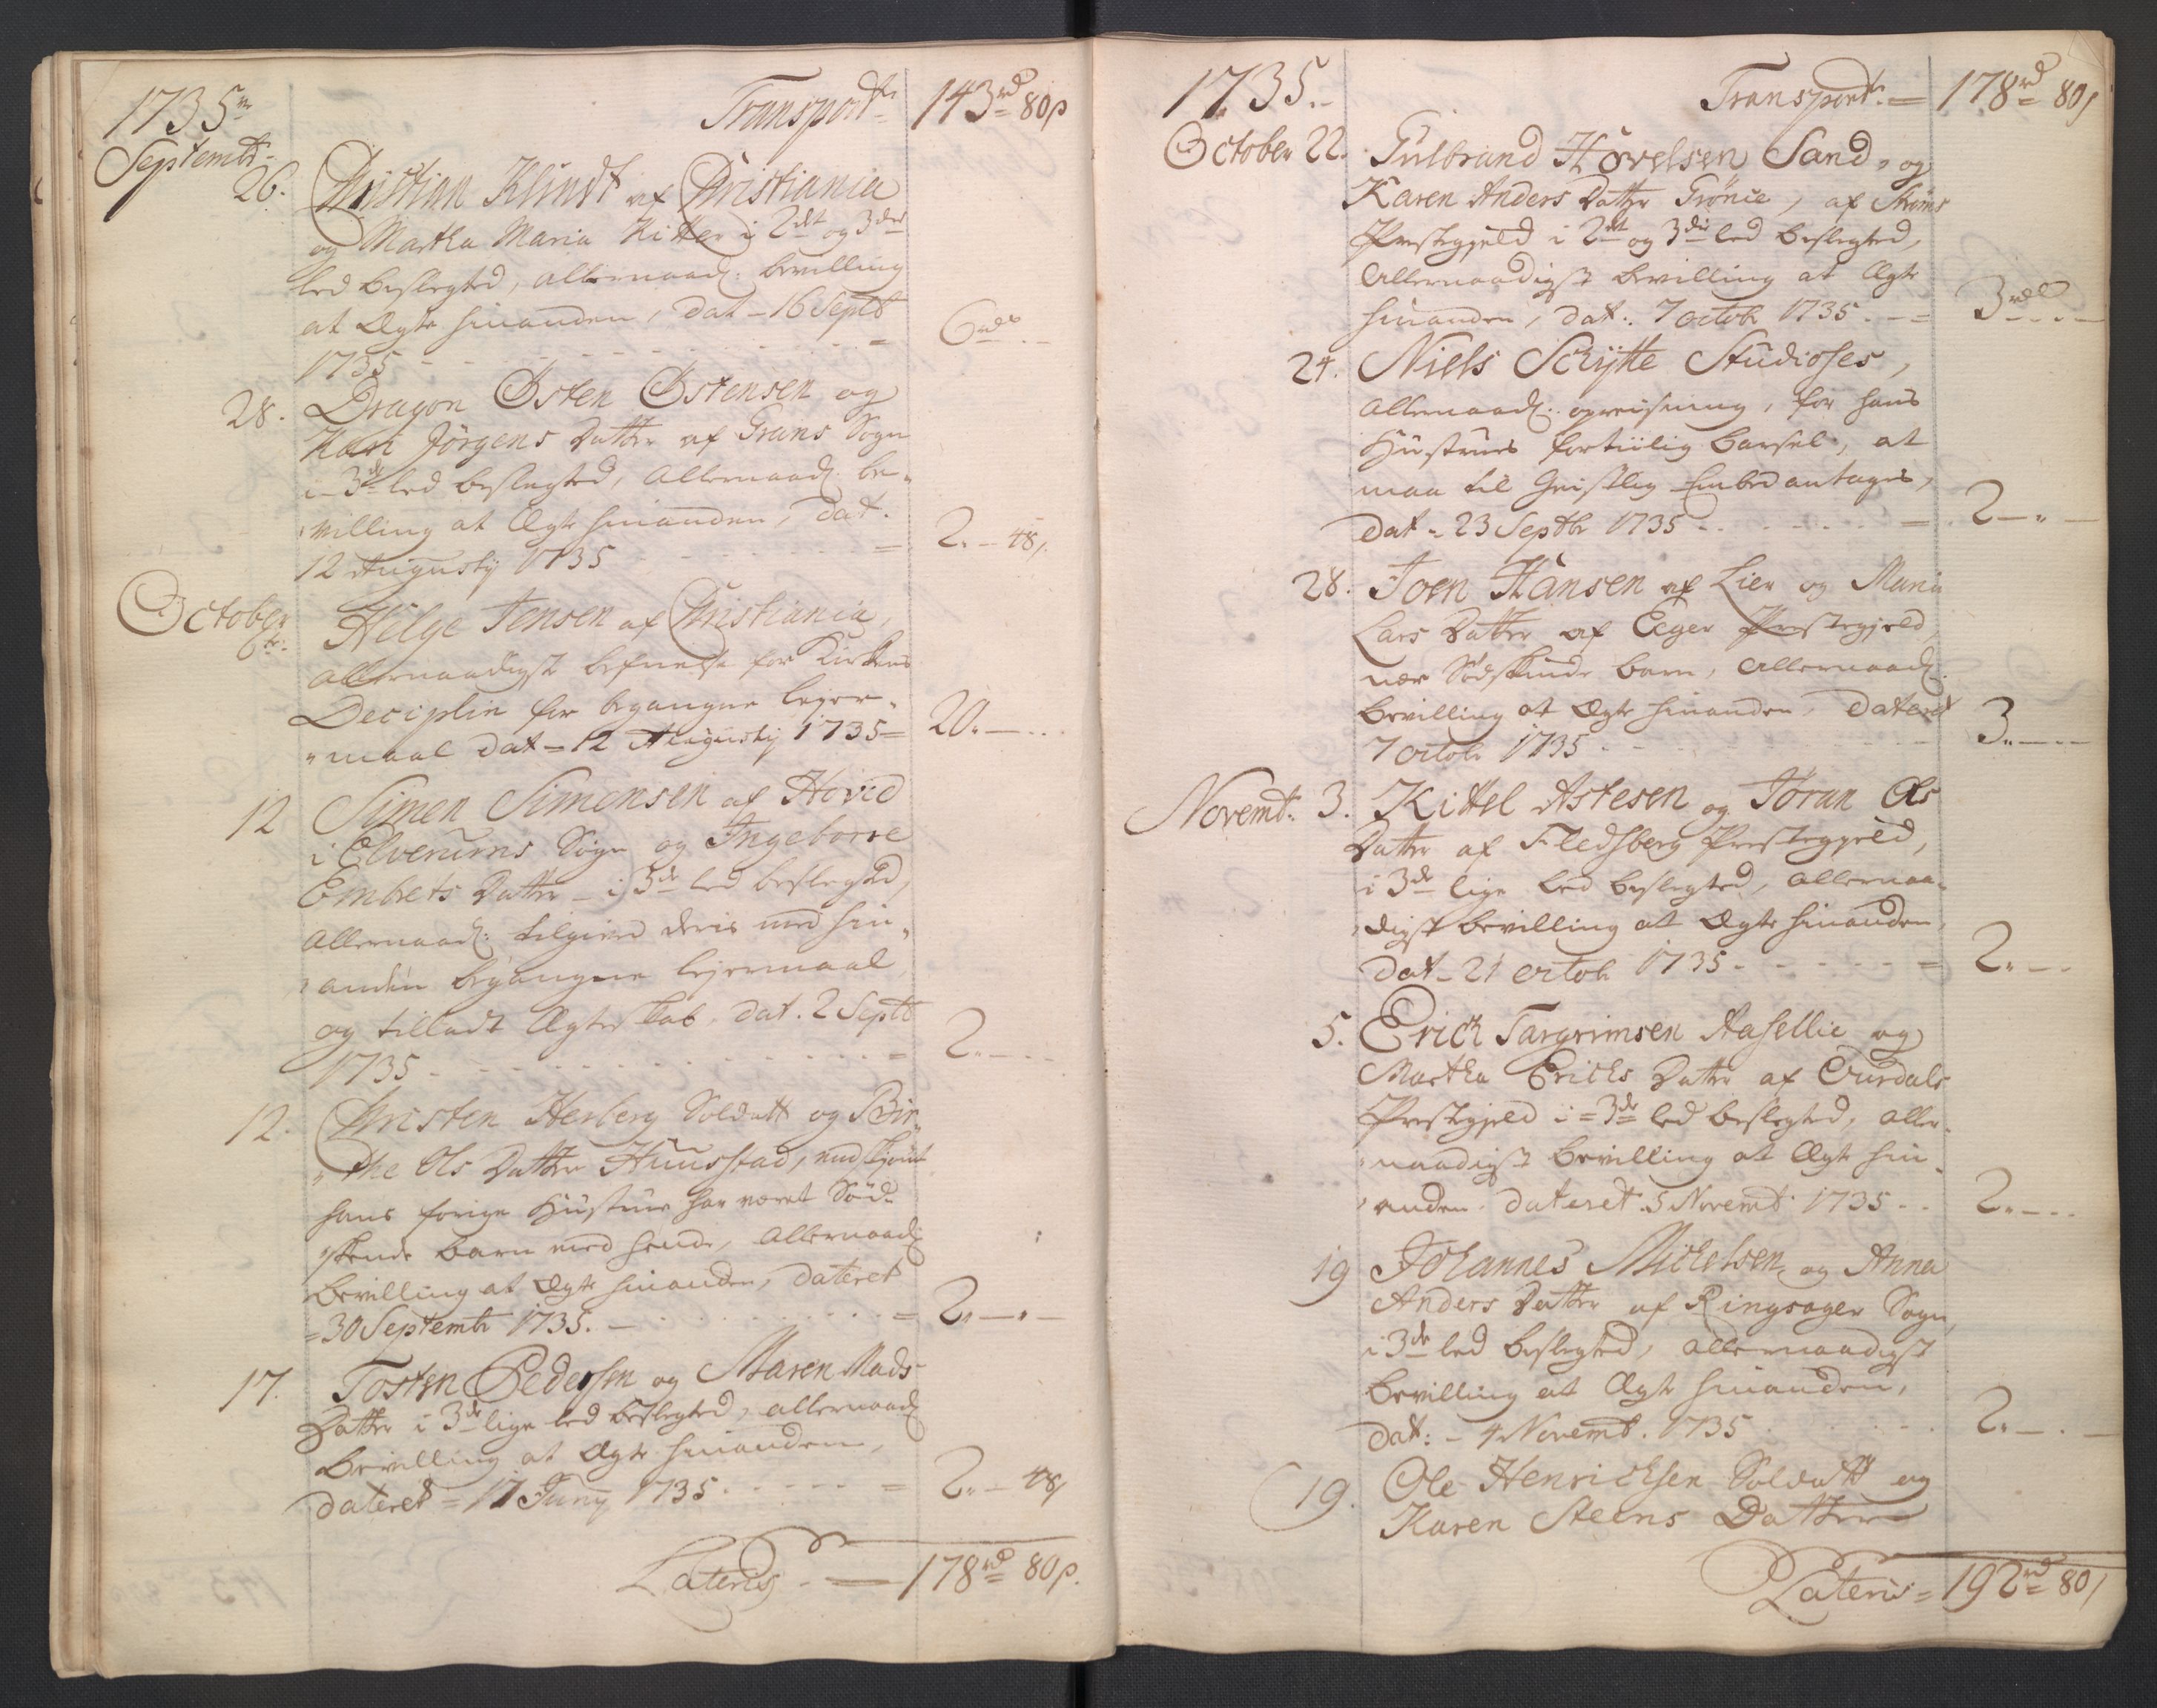 1735
Transport 143rd 80s
Septembr
26. Christian Klindt af Christiania
og Martha Maria Ritter i 2det og 3die
led beslegted, allernaad: bevilling
at Ægte hinanden, dat - 16 Septb
1735 - - - = 6rd
28. Dragon Østen Østensen og
Kari Jörgens Datter af Grans Sogn
i 3de led beslegted, Allernaad: be-
villing at Ægte hinanden, dat.
12 Augustij 1735 = 2. - 48.
October
6te. Helge Jensen af Christiania,
allernaadigst befrielse for Kirkens
Deciplin for begangne lejer-
maal dat - 12 Augustij 1735 = 20. -
12 Simen Simensen af Hovid
i Elverums Sogn og Ingeborre
Embrets Datter - i 3de led beslegted,
Allernaad: tilgived deris med hin-
anden begangne lejermaal
og tilladt Ægteskab. dat. 2 Septb
1735 - - - = 2. -
12. Christen Herberg Soldatt og Bir-
the Ols Datter Huusstad, endskjönt
hans forige Hustrue har været Söd-
skende barn med hende, Allernaad:
bevilling at Ægte hinanden, dateret
= 30 Septembr 1735. - = 2. -
17. Tosten Pedersen og Maren Mads
Datter i 3de lige led beslegted, allernaad:
bevilling at Ægte hinanden,
dateret = 17 Juny 1735. - = 2. - 48
Lateris - 178rd 80s.
1735.
Transport = 178rd 80s
October 22. Gulbrand Hovelsen Sand, og
Karen Anders Datter Grönie, af Ströms
Prestegjeld i 2det og 3die led beslegted,
Allernaadigst bevilling at Ægte
hinanden, dat: 7 octobr 1735 - = 3rdl
24. Niels Schytte Studioses,
Allernaad: opreisning, for hans
Hustrues fortiilig barsel, at
maa til Geistlig Embed antages,
dat = 23 Septbr 1735 - = 2 -
28. Joen Hansen af Lier og Maria
Lars Datter af Eeger Prestegjeld
nær Södskinde barn, Allernaad:
bevilling at Ægte hinanden, dateret
7 octobr 1735 - 3. -
Novemb: 3. Kittel Astesen og Jöran Ols
Datter af Fledsberg Prestegjeld,
i 3de lige led beslegted, Allernaa-
digst bevilling at Ægte hinanden,
dat - 21 octobr 1735 - = 2. -
5. Erich Targrimsen Aasellie og
Martha Erichs Datter af Ourdals
Prestegjeld i = 3de led beslegted, aller-
naadigst bevilling at Ægte hin-
anden. dateret. 5 Novemb 1735 - 2. -
19 Johannes Michelsen og Anna
Anders Datter af Ringsager Sogn,
i 3de led beslegted, allernaadigst
bevilling at Ægte hinanden,
dat: - 4 Novemb. 1735 2. -
19. Ole Henrichsen Soldatt og
Karen Steens Datter
Lateris = 192rd 80s